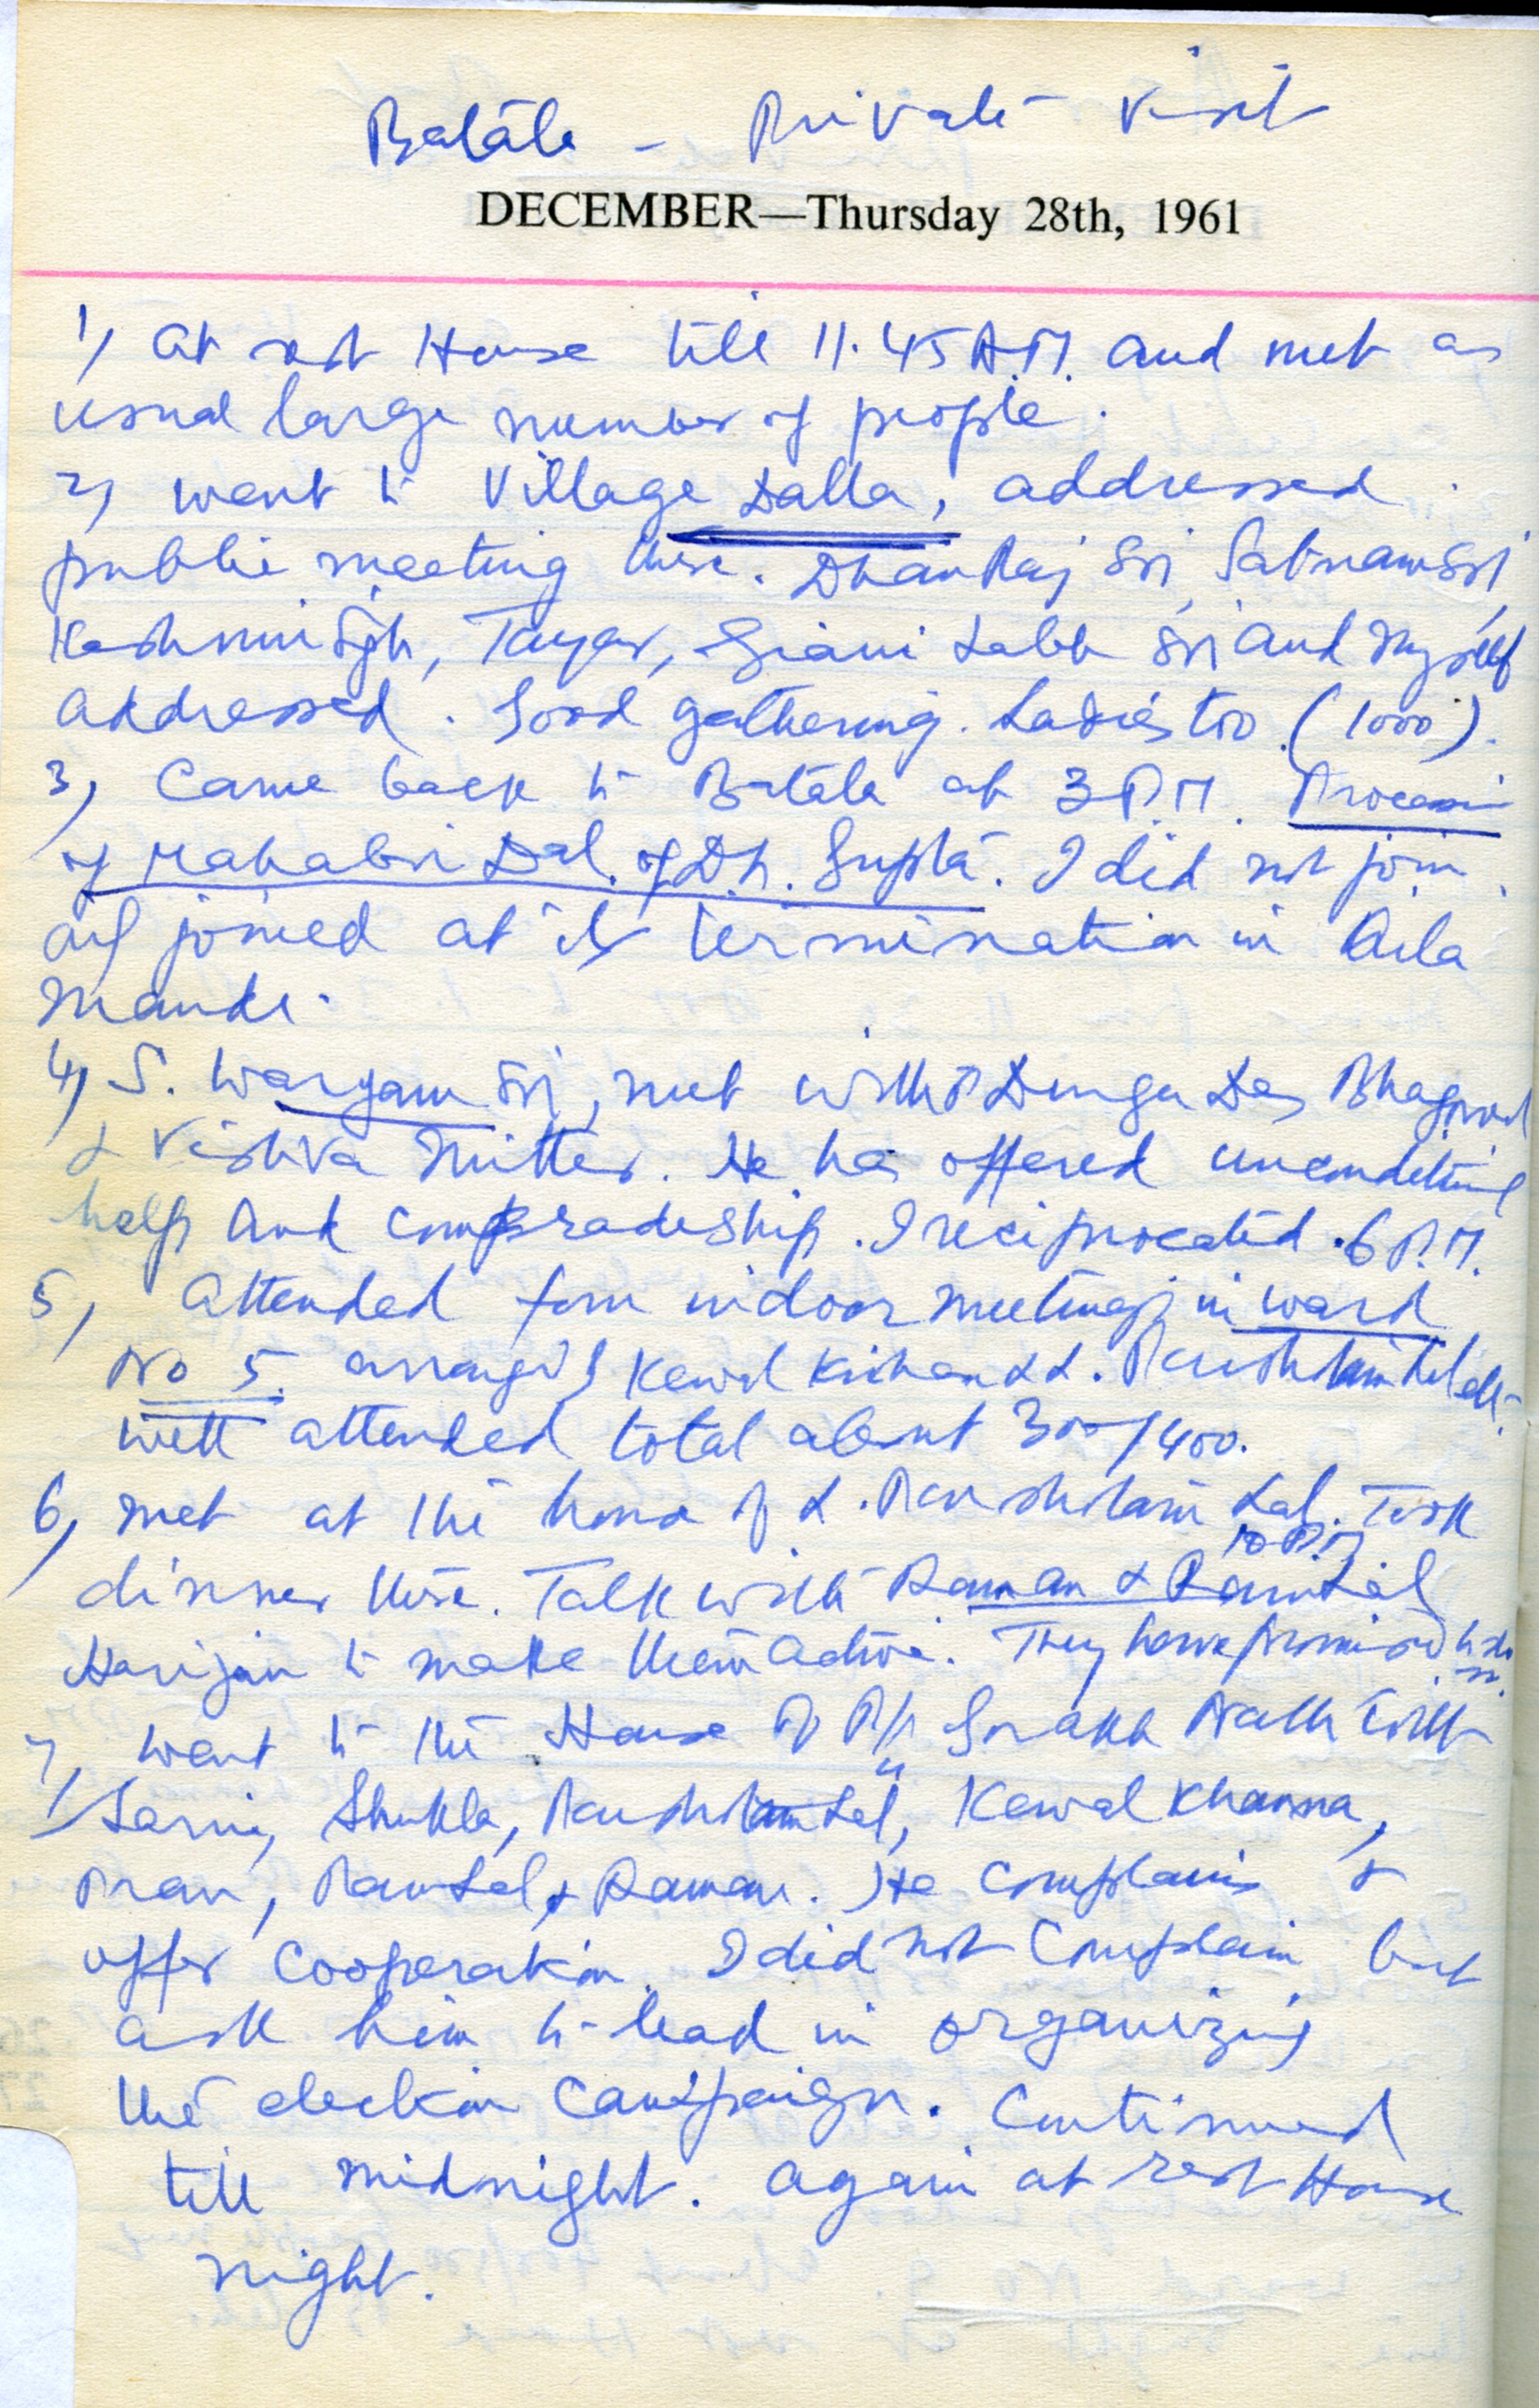 Batāla - Private Visit
DECEMBER—Thursday 28th, 1961
1, At rest House till 11.45 A.M. and met as
usual large number of people.
2, went to Village Dalla, addressed
public meeting there. Dhan Raj Sri, Satnam Sri,
Kashmir Sgh, Giani Labh Sri and myself
addressed. Good gathering. Ladies too (1000).
3, Came back to Batāla at 3 P.M. Procession
of Mahabir Dal of D.N. Gupta. I did not join
joined at its termination in Qila
Mandi.
4, S. Waryam Sri, met with Durga Das
& Vishva Mitter. He has offered unconditional
help and comradeship. I reciprocated. 6 P.M.
5, Attended four indoor meetings in ward
No 5. Kewal Krishan & L. Parshotam Lal etc.
well attended total about 300/400.
6, Met at the house of L. Parshotam Lal. Took
10 P.M
dinner there. Talk with Raman & Ram Lal
Harijan to make them active. They have promised to do
so.
7, Went to the House of Pt. Gorakh Nath with
Shukla, Parshotam Lal, Kewal Khanna,
Pran, Ram Lal, & Raman. He complains &
offer cooperation. I did not complain but
ask him to lead in organizing
the election campaign. Continued
till midnight. Again at rest House
night.